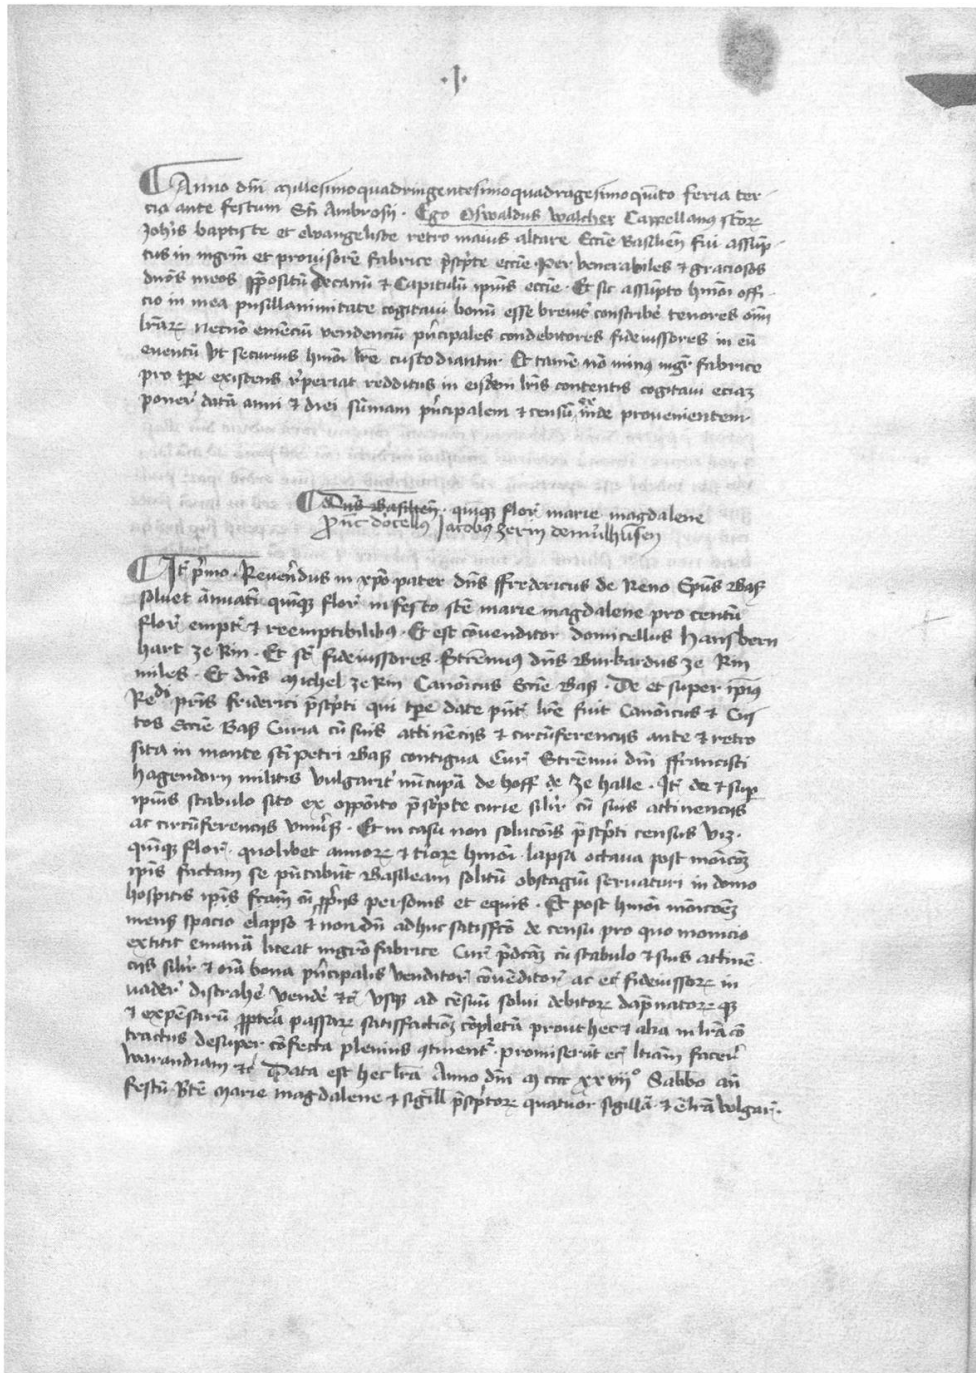 ·I·
Anno dm̄ Millesimoquadringentesimoquadragesimoqūito feria ter-
cia ante festum Sti Ambrosij · Ego Oswaldus Walcher Cappellanus stoꝝ
Joh̄is baptiste et ewangeliste retro maius altare Eccīe Basilien̄ fui assūp-
tus in mgrm̄ et prouisorē fabrice p̄sc̄pte eccīe · Per venerabiles & graciosos
dn̄os meos p̄positū Decanū & Capitulū ip̄ius eccīe · Et sic assūpto hm̄oi offi-
cio in mea pusillanimitate cogitaui bonū esse breuit̄ conscribē tenores om̄
lr̄aꝝ necnō emēciū vendenciū p̄ncipales condebitores fideiussores in eū
euentū vt securius hm̄oi lr̄e custodiantur Et tamē nō minus mgr̄ fabrice
pro tp̄e existens r̄periat redditus in eisdem lr̄is contentis cogitaui eciaꝫ
poner̄ datā anni & diei sūmam p̄ncipalem & censū exinde prouenientem
Dn̄s Basilien̄ · quīqꝫ flor̄ marie magdalene
p̄nc Jacobus zerin de mulhusen
It̄ p̄mo · Reuer̄ndus in xp̄o pater dn̄s ffredericus de Reno Ep̄us Bas̄
soluet ānuatī quīqꝫ flor̄ in festo stē marie magdalene pro centū
flor̄ empt̄ & reemptibilibus · Et est cōuenditor domicellus Hans bern
hart ze Rin · Et st̄ fideiussores · Strēnuus dn̄s Burkardus ze Rin
miles · Et dn̄s Michel ze Rin Canōicus Eccīe Bas̄ · De et super ip̄ius
Redi pr̄is friderici p̄sc̄pti qui tp̄e date p̄nt̄ lr̄e fuit Canōicus & Cus
tos Eccīe Bas̄ Curia cū suis attinēcijs & circūferencijs ante & retro
sita in monte stī petri Bas̄ contigua Cur̄ Strēnui dn̄i ffrancisci
hagendorn militis vulgarit̄ nūcupā de hoff ze halle · It̄ de & sup
ip̄ius stabulo sito ex oppōito p̄sc̄pte curie silr̄ cū suis attinencijs
ac circūferencijs vniūs̄ · Et in casu non solucōis p̄sc̄pti census viz.
quīqꝫ flor̄ · quolibet annoꝝ & t̄ioꝝ hm̄oi · lapsa octaua post moīcoꝫ
ip̄is factam se p̄ntabūt Basileam solitū obstagiū seruaturi in domo
hospitis ip̄is cū pp̄ijs personis et equis · Et post hm̄oi mōicōeꝫ
mens̄ spacio elapso & nondū adhuc satisffcō de censu pro quo monicio
extitit emanā liceat mgrō fabrice Cur̄ p̄dcāꝫ cū stabulo & suis attinē
cijs silr̄ & oīa bona p̄ncipalis venditor̄ cōuēditor̄ ac ec̄ fideiussoꝝ in
uader̄ distrahē vendē &c̄ vsqꝫ ad cēsuū solui debitoꝝ dāpnatoꝝqꝫ
& expēsarū pptēa passaꝝ satisfactioꝫ cōpletā prout hec & alia in lr̄a cō
tractus desuper cōfecta plenius ꝯtinent̄ promiserūt ec̄ ltiām facer̄
warandiam &c̄ Data est hec lr̄a Anno dm̄ M cccc xxviijº Sabbo añ
festū bt̄e Marie magdalene & sigill p̄sc̄ptoꝝ quatuor sigillā · & ē lr̄a vulgar̄.